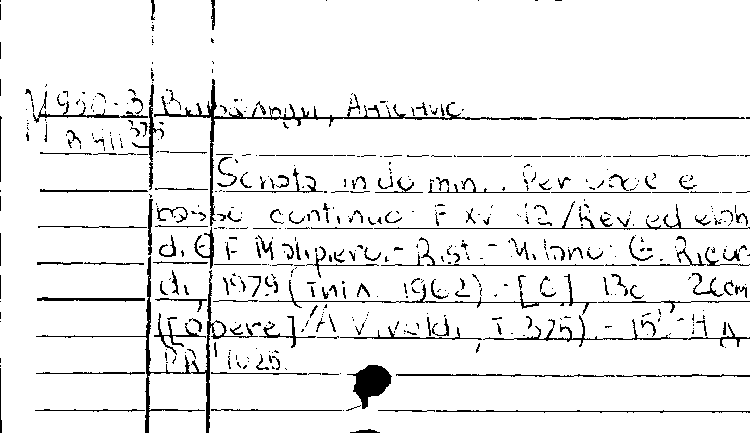 М 950-3 Вивальди, Антонио
В 411 375
Sonata in do min.. Per voce e
basso continuo F XV 12/Rev. ed elab.
di G F Malipiero.- Rist.- Milano: G. Ricor-
di, 1979 (тит. л. 1962).- [C], 13c, 26cm
([Opere]/A Vivaldi, т. 375).- 15'- Н.д.
PR 1025.